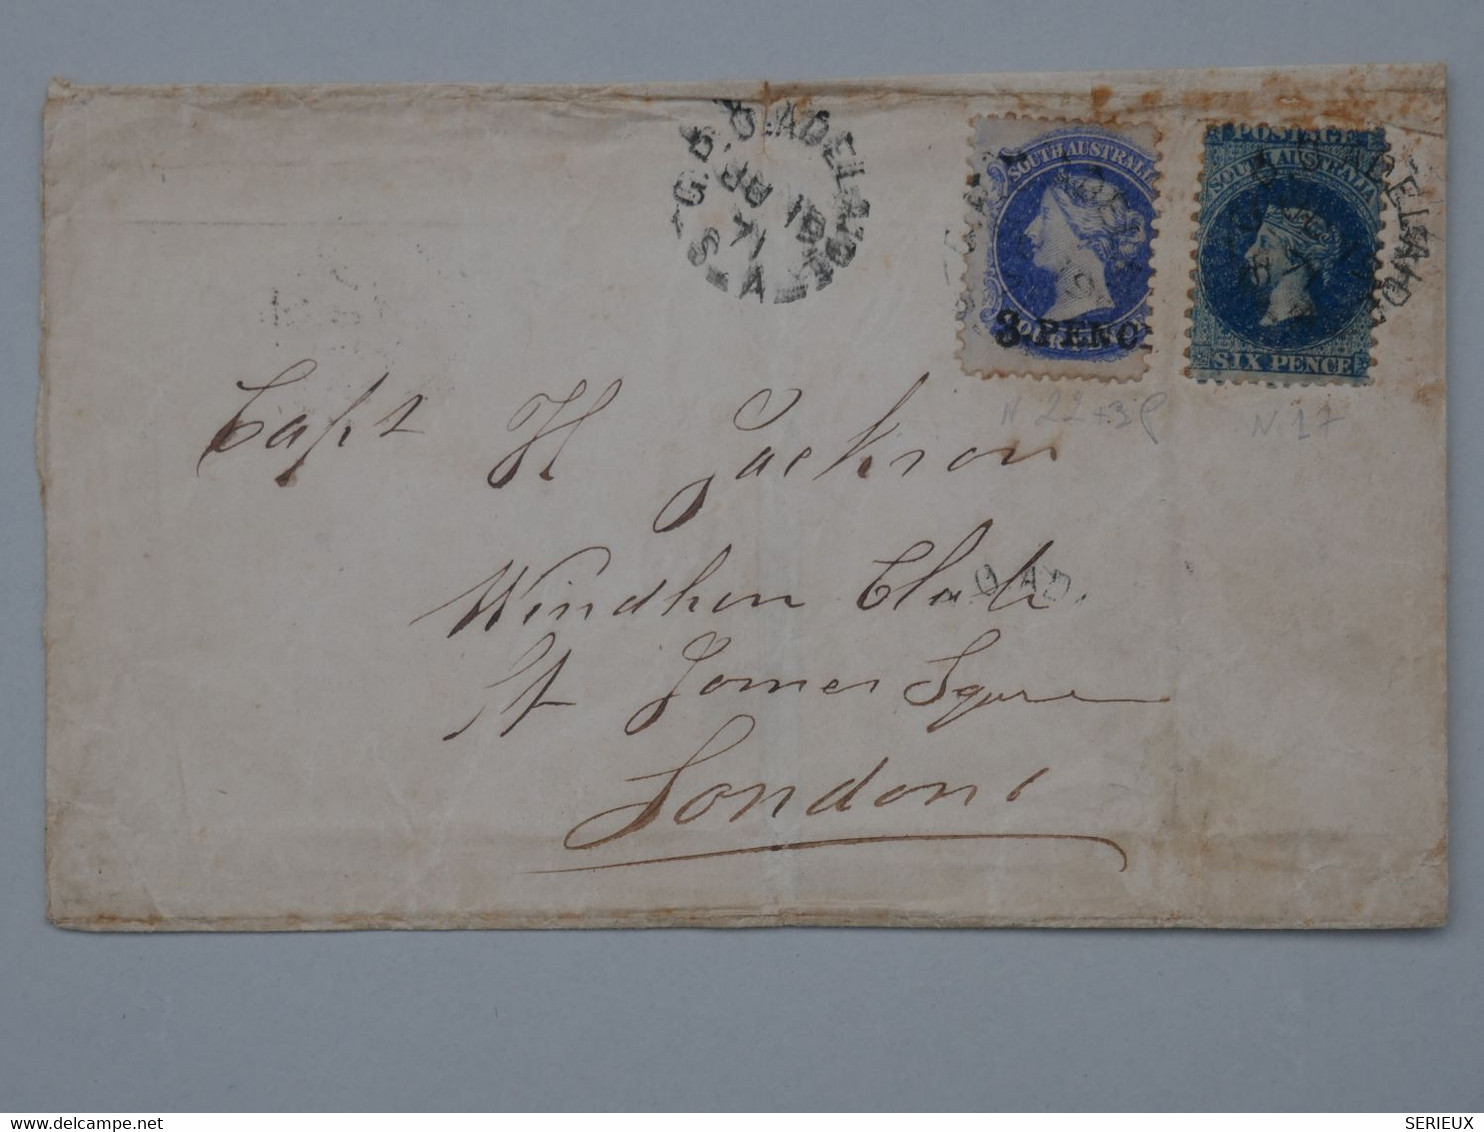 G.P.O. ADELAIDE
S A
SOUTH AUSTRALIA
3-PENC
POSTAGE
SOUTH AUSTRALIA
SIX PENCE
ADELAIDE
N 22+3P
N 17
Capt H Jackson
Windham Club
St James Square
London
delcampe.net
SERIEUX